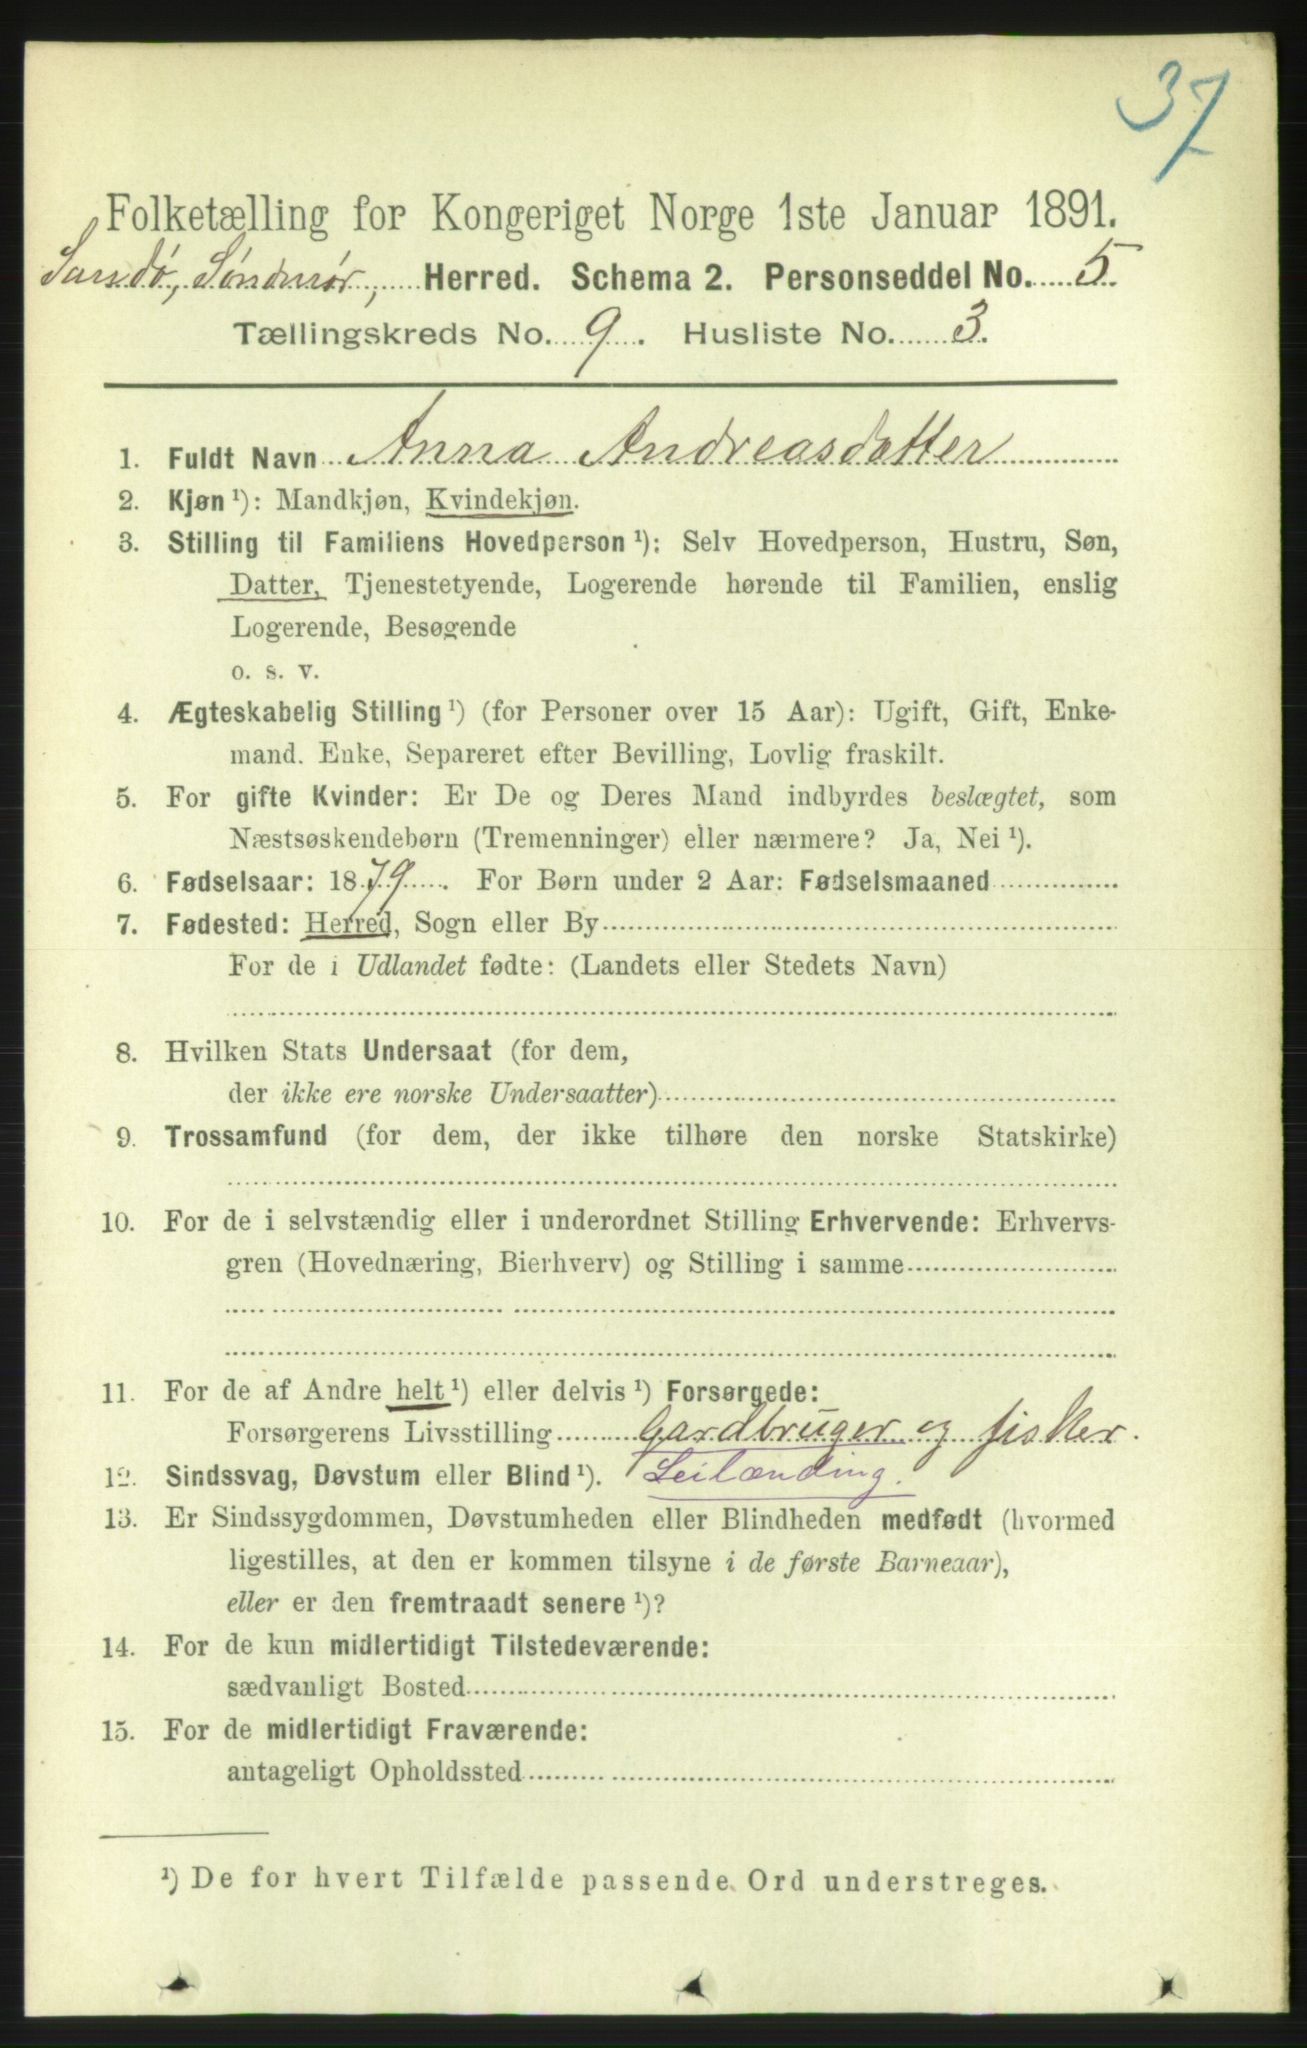 37
Folketælling for Kongeriget Norge 1ste Januar 1891.
Sandø, Søndmør, Herred. Schema 2. Personseddel No. 5.
Tællingskreds No. 9. Husliste No. 3.
1. Fuldt Navn Anna Andreasdatter
2. Kjøn ¹): Mandkjøn, Kvindekjøn.
3. Stilling til Familiens Hovedperson ¹): Selv Hovedperson, Hustru, Søn,
Datter, Tjenestetyende, Logerende hørende til Familien, enslig
Logerende, Besøgende
o. s. v.
4. Ægteskabelig Stilling ¹) (for Personer over 15 Aar): Ugift, Gift, Enke-
mand. Enke, Separeret efter Bevilling, Lovlig fraskilt.
5. For gifte Kvinder: Er De og Deres Mand indbyrdes beslægtet, som
Næstsøskendebørn (Tremenninger) eller nærmere? Ja, Nei ¹).
6. Fødselsaar: 1879. For Børn under 2 Aar: Fødselsmaaned
7. Fødested: Herred, Sogn eller By
For de i Udlandet fødte: (Landets eller Stedets Navn)
8. Hvilken Stats Undersaat (for dem,
der ikke ere norske Undersaatter)
9. Trossamfund (for dem, der ikke tilhøre den norske Statskirke)
10. For de i selvstændig eller i underordnet Stilling Erhvervende: Erhvervs-
gren (Hovednæring, Bierhverv) og Stilling i samme
11. For de af Andre helt ¹) eller delvis ¹) Forsørgede:
Forsørgerens Livsstilling Gardbruger og fisker.
12. Sindssvag, Døvstum eller Blind ¹). Leilænding.
13. Er Sindssygdommen, Døvstumheden eller Blindheden medfødt (hvormed
ligestilles, at den er kommen tilsyne i de første Barneaar),
eller er den fremtraadt senere ¹)?
14. For de kun midlertidigt Tilstedeværende:
sædvanligt Bosted
15. For de midlertidigt Fraværende:
antageligt Opholdssted
¹) De for hvert Tilfælde passende Ord understreges.